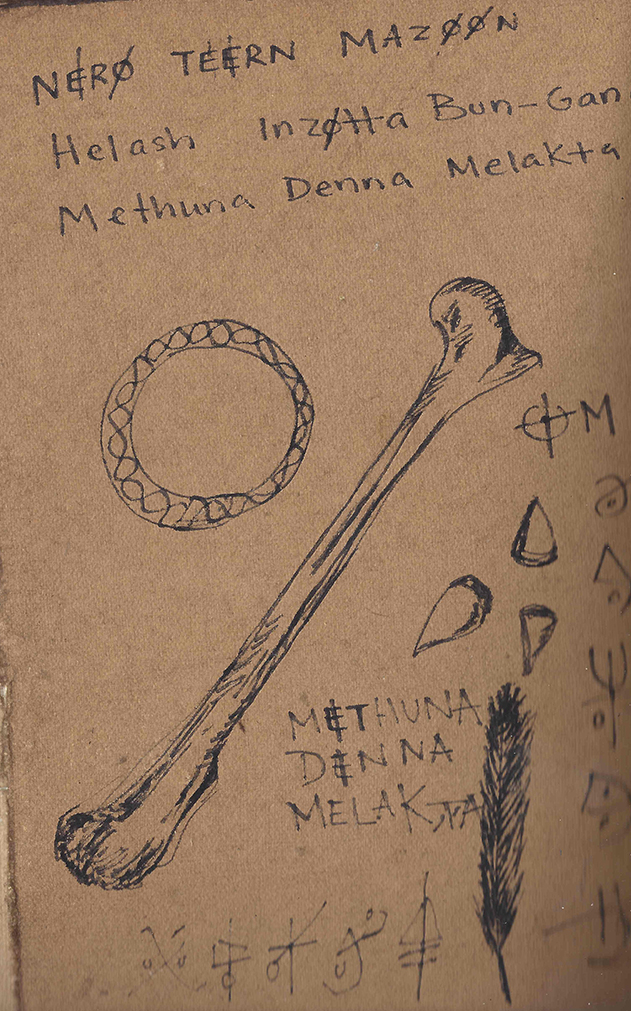 NERØ TEERN MAZØØN
Helash Inzøtta Bun-Gan
Methuna Denna Melakta
M
METHUNA
DENNA
MELAKTA